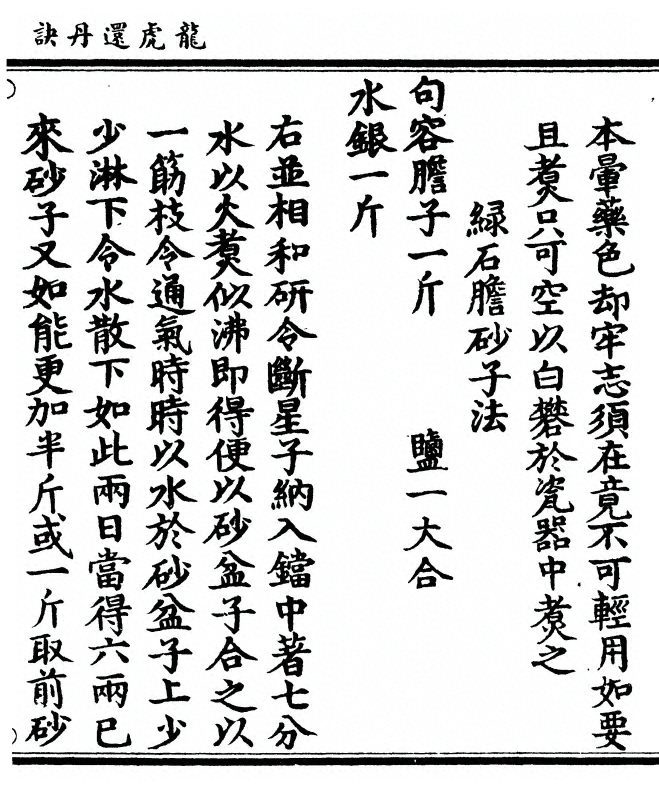 龍虎還丹訣
本暈藥色却牢志須在竟不可輕用如要
且煑只可空以白礬於瓷器中煑之
緑石膽砂子法
句容膽子一斤 鹽一大合
水銀一斤
右並相和研令斷星子納入鐺中著七分
水以火煑似沸即得便以砂盆子合之以
一筯枝令通氣時時以水於砂盆子上少
少淋下令水散下如此兩日當得六兩已
來砂子又如能更加半斤或一斤取前砂